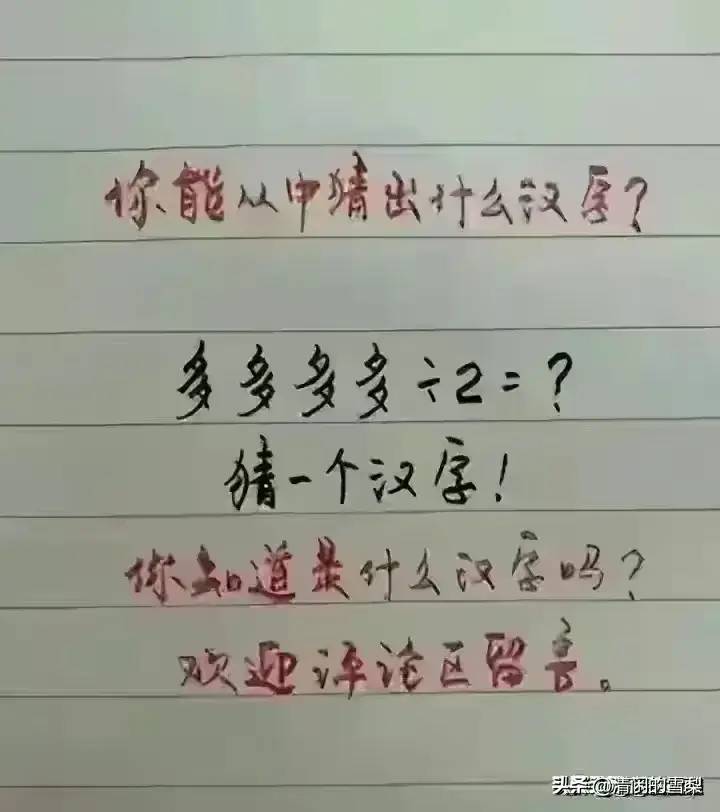 你能从中猜出什么汉字?
多多多多÷2=?
猜一个汉字!
你知道是什么汉字吗?
欢迎评论区留言。
头条@清闲的雪梨